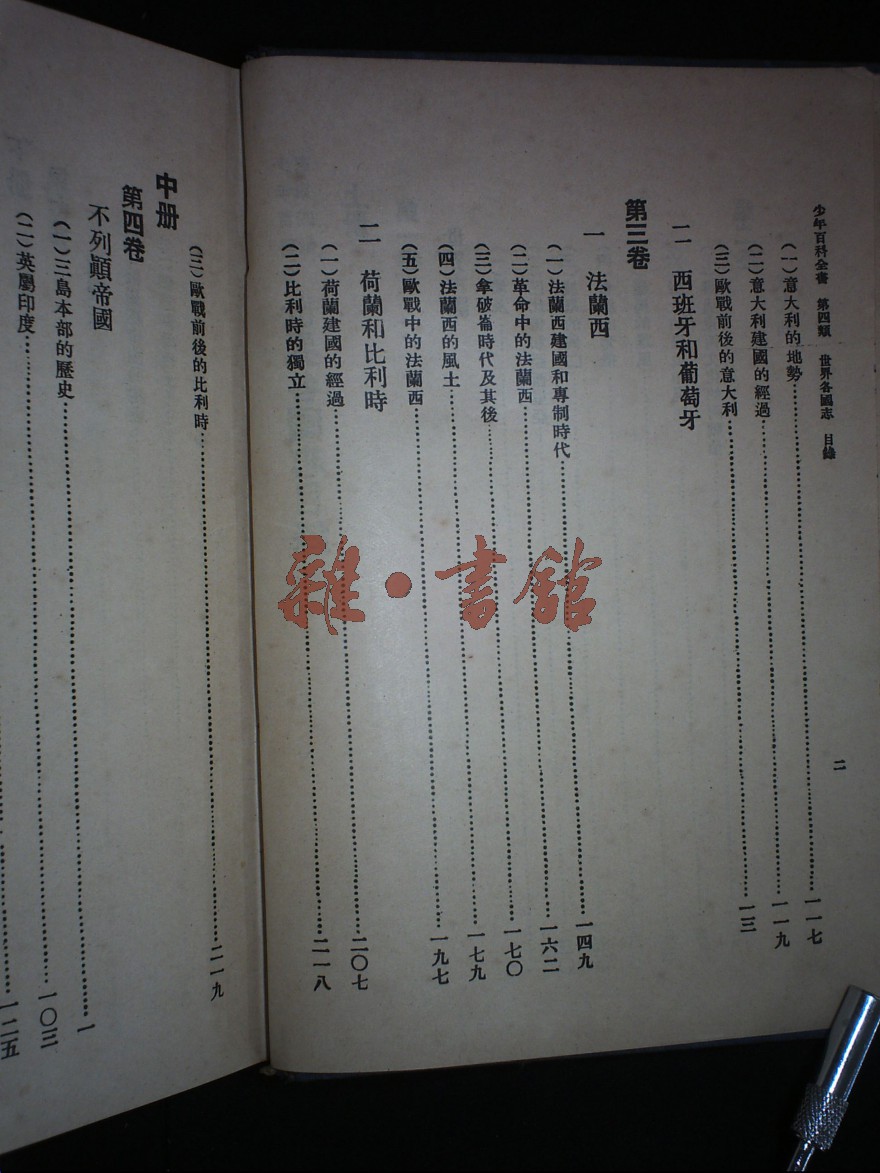 少年百科全書 第四類 世界各國志 目錄
二
(一)意大利的地勢……一一七
(二)意大利建國的經過……一一九
(三)歐戰前後的意大利……一三
二 西班牙和葡萄牙
第三卷
一 法蘭西
(一)法蘭西建國和專制時代……一四九
(二)革命中的法蘭西……一六二
(三)拿破崙時代及其後……一七〇
(四)法蘭西的風土……一七九
(五)歐戰中的法蘭西……一九七
二 荷蘭和比利時
(一)荷蘭建國的經過……二〇七
(二)比利時的獨立……二一八
(三)歐戰前後的比利時……二一九
中册
第四卷
不列顛帝國
(一)三島本部的歷史……一
(二)英屬印度……一〇三
一二五
雜·書館